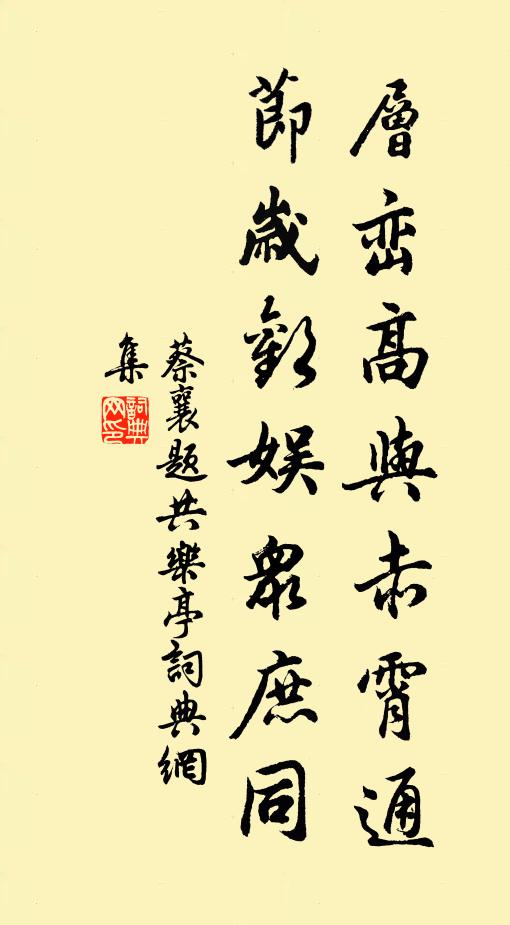 層巒高與赤霄通
節歲歡娛衆庶同
蔡襄題共樂亭詞典網
集
詞典
网印